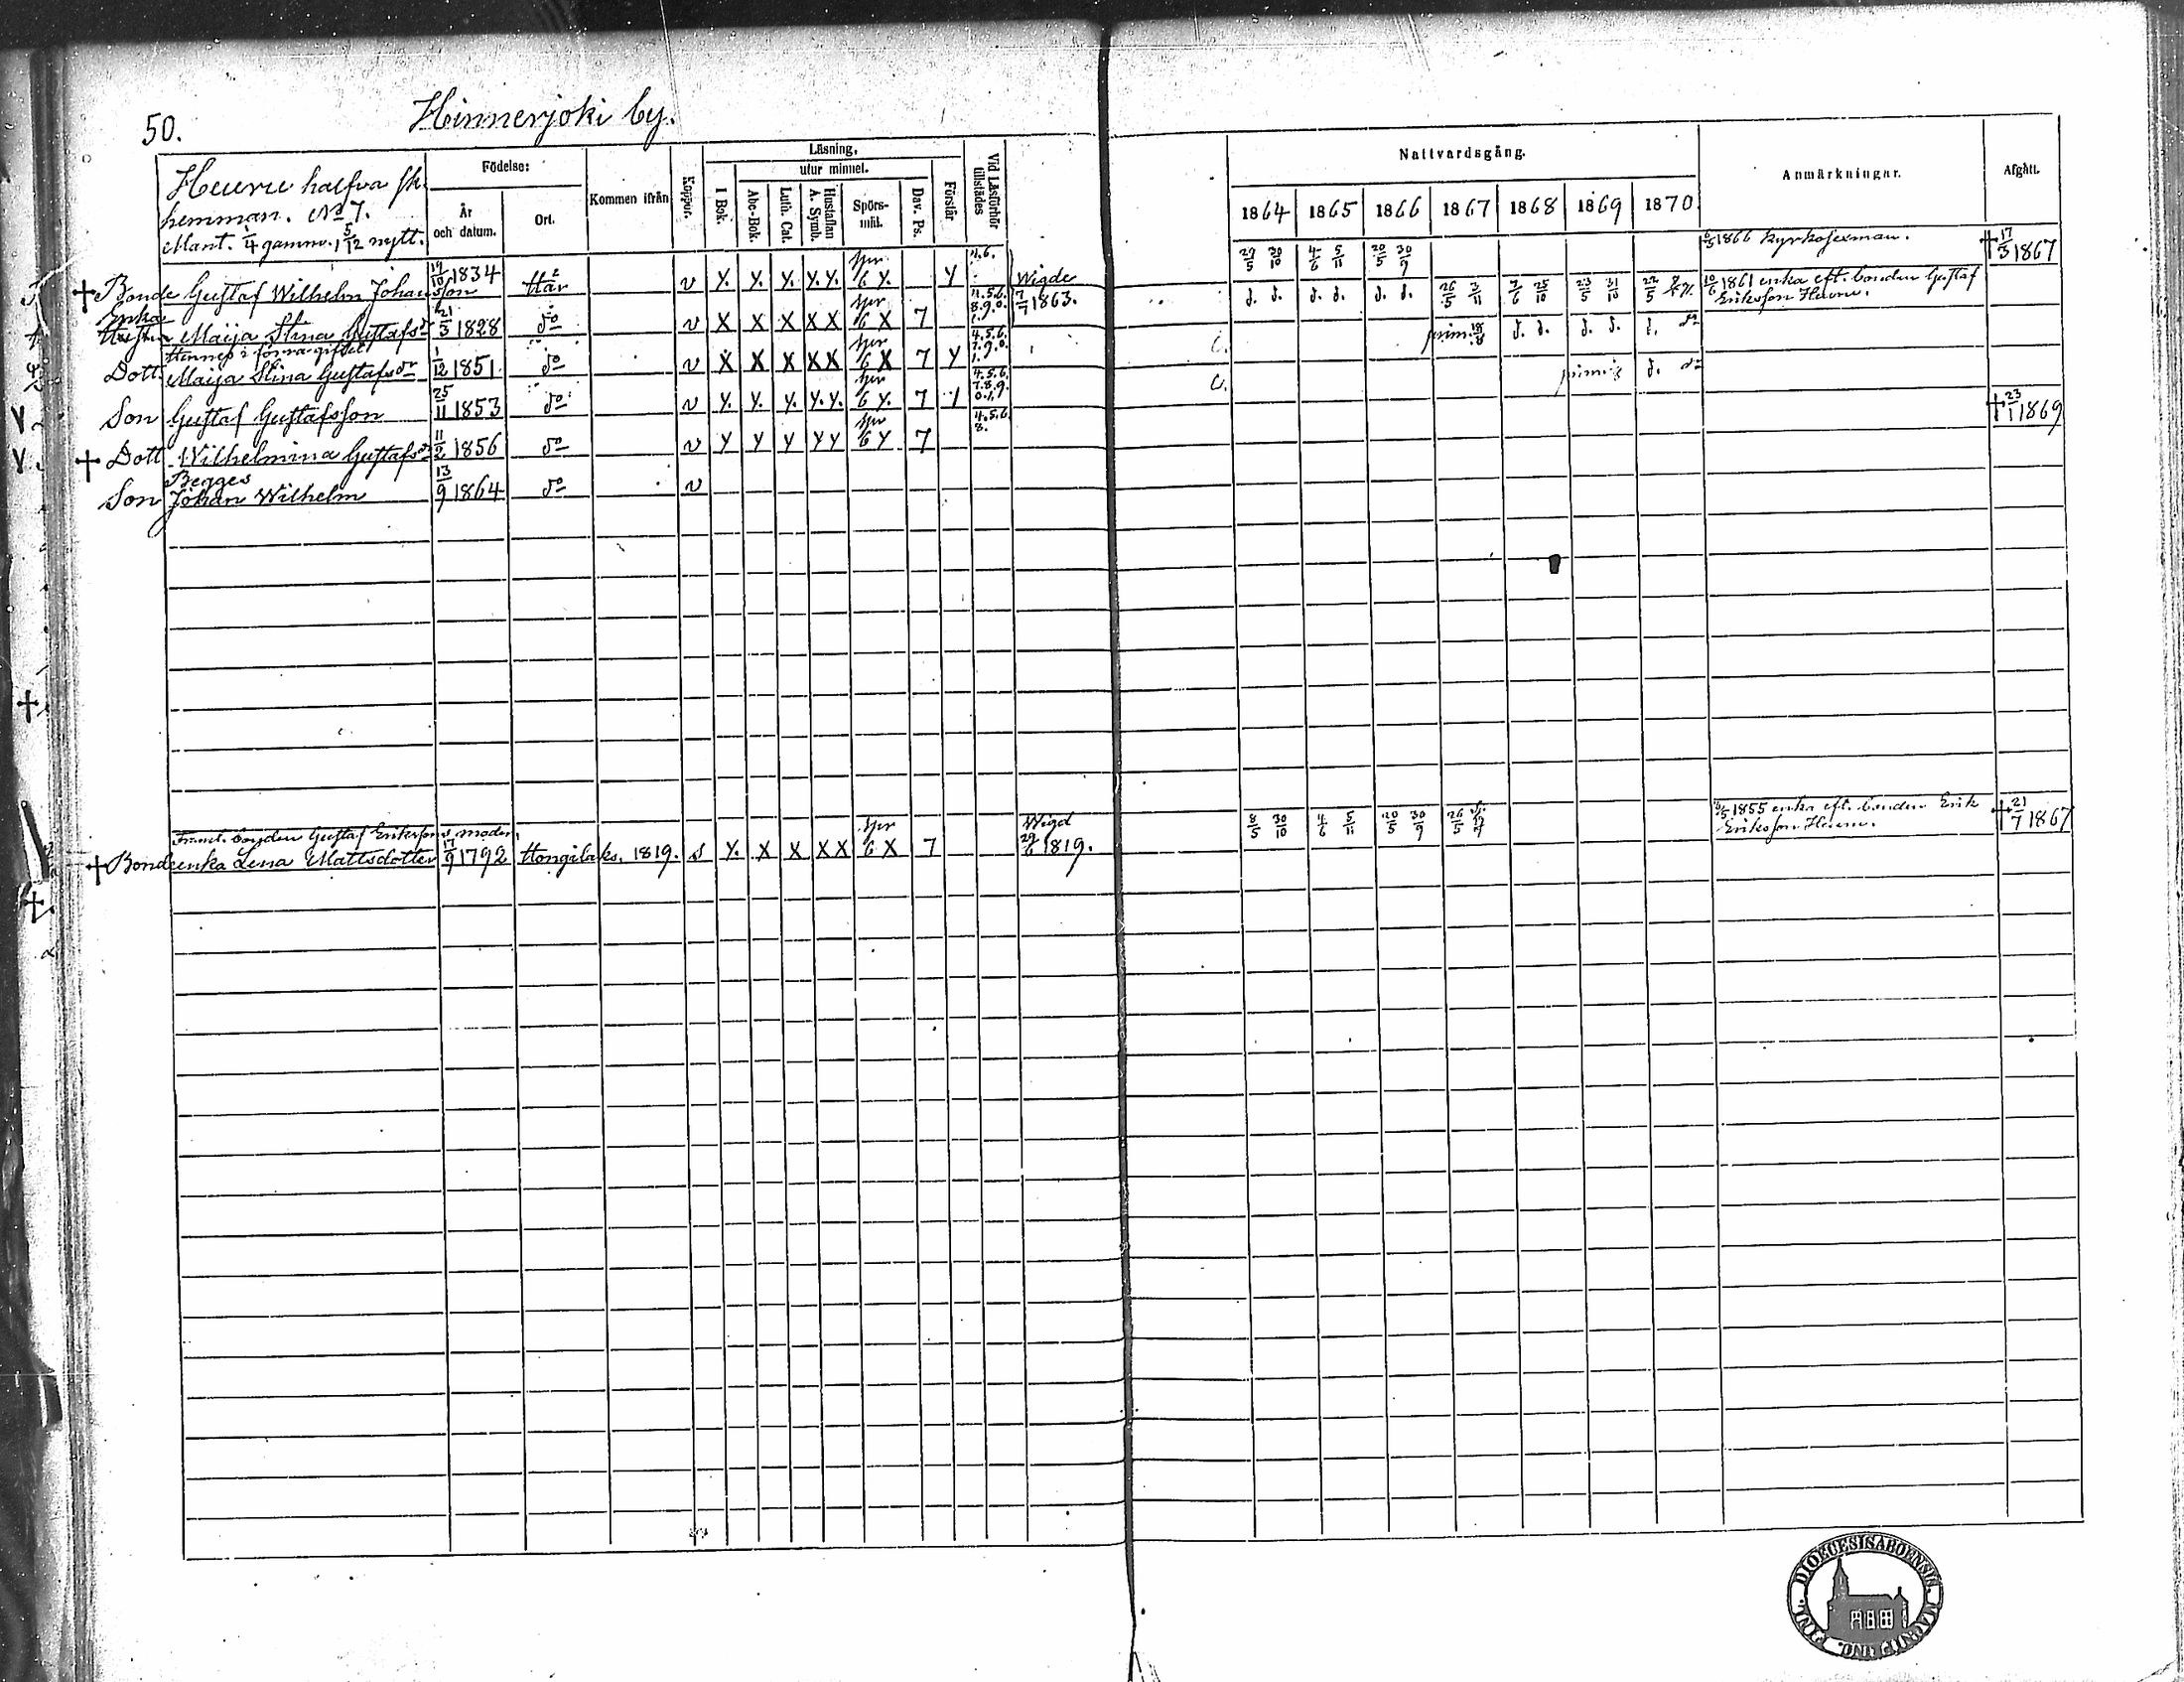 50.
Hinnerjoki by.
Heuru halfva sk.
hemman. No 7.
Mant. 1/4 gamm. 5/12 nytt.
Födelse:
År och datum.
Ort.
Kommen ifrån
Koppor.
Läsning,
utur minnet.
I Bok.
Abc-Bok.
Luth. Cat.
Hustaflan A. Symb.
Spörs-mål.
Dav. Ps.
Förstår
Vid Läsförhör tillstädes
Nattvardsgång.
1864 1865 1866 1867 1868 1869 1870.
Anmärkningar.
Afgått.
† Bonde Gustaf Wilhelm Johansson 14/10 1834 Här v Y. Y. Y. Y. Y. spr 6 Y. Y 4.6. Wigde 29/5 30/10 4/6 5/11 20/5 30/9 6/5 1866 kyrkosexman. † 17/3 1867
Enka
Hustru Maija Stina Gustafsdr 21/3 1828 do v X X X X X spr 6 X 7 4.5.6. 8.9.0. 1. 7/7 1863. d. d. d. d. d. d. 26/5 3/11 7/6 25/10 23/5 31/10 22/5 10/6 1861 enka eft. bonden Gustaf
Eriksson Heuru.
Hennes i förra giftet
Dott. Maija Stina Gustafsdr 1/12 1851. do v X X X X X spr 6 X 7 Y 4.5.6. 7.9.0. 1. C. prim. 18/8 d. d. d. d. d. do
Son Gustaf Gustafsson 25/11 1853 do v Y. Y. Y. Y. Y. spr 6 Y. 7 1 4.5.6. 7.8.9. 0.1. C. d. do
† Dott Wilhelmina Gustafsdr 11/2 1856 do v Y Y Y Y Y spr 6 Y 7 4.5.6. 8. † 23/1 1869
Begges
Son Johan Wilhelm 13/9 1864 do v
Framl. bonden Gustaf Erikssons moder,
† Bondeenka Lena Mattsdotter 17/9 1792 Hongilaks. 1819. s Y. X X X X spr 6 X 7 Wigd 29/6 1819. 8/5 30/10 4/6 5/11 20/5 30/9 26/5 6/5 1855 enka eft. bonden Erik
Eriksson Heuru. † 21/7 1867
DIOECESIS ABOENSIS MAGNI DUC. FINL.